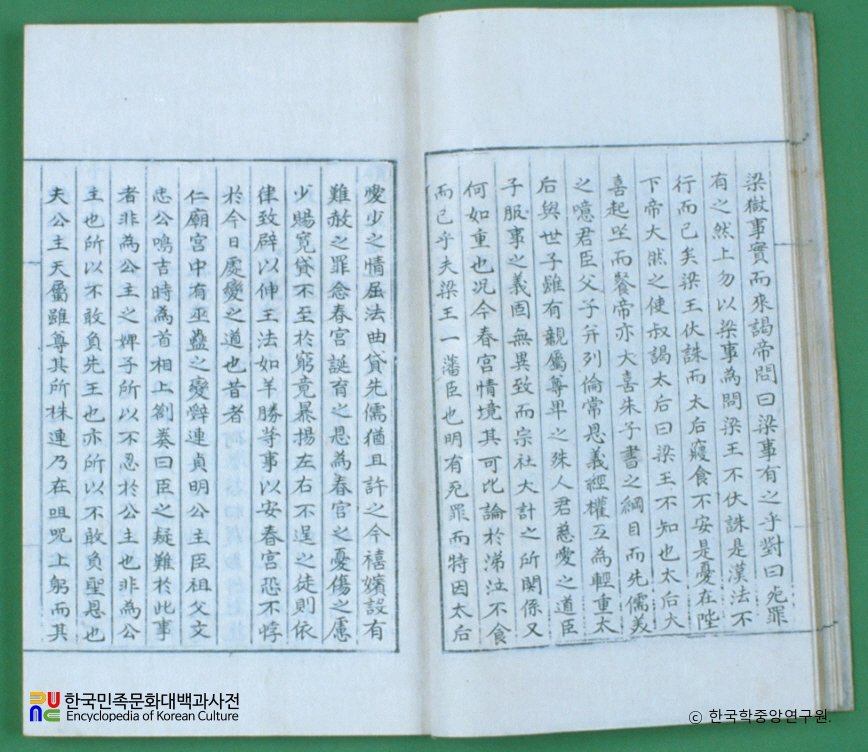 梁獄事實而來謁帝問曰梁事有之乎對曰死罪
有之然上勿以梁事為問梁王不伏誅是漢法不
行而已矣梁王伏誅而太后寢食不安是憂在陛
下帝大然之使叔謁太后曰梁王不知也太后大
喜起坐而餐帝亦大喜朱子書之綱目而先儒美
之噫君臣父子并列倫常恩義經權互為輕重太
后與世子雖有親屬尊卑之殊人君慈愛之道臣
子服事之義固無異致而宗社大計之所關係又
何如重也况今春宮情境其可比論於涕泣不食
而已乎夫梁王一藩臣也明有死罪而特因太后
愛少之情屈法曲貸先儒猶且許之今禧嬪設有
難赦之罪念春宮誕育之恩為春宮憂傷之慮
少賜寬貸不至於窮竟暴揚左右不逞之徒則依
律致辟以伸王法如羊勝等事以安春宮恐不悖
於今日處變之道也昔者
仁廟宮中有巫蠱之變辭連貞明公主臣祖父文
忠公鳴吉時為首相上劄奏曰臣之疑難於此事
者非為公主之婢子所以不忍於公主也非為公
主也所以不敢負先王也亦所以不敢負聖恩也
夫公主天屬雖尊其所株連乃在咀呪上躬而其
한국민족문화대백과사전
Encyclopedia of Korean Culture
© 한국학중앙연구원.